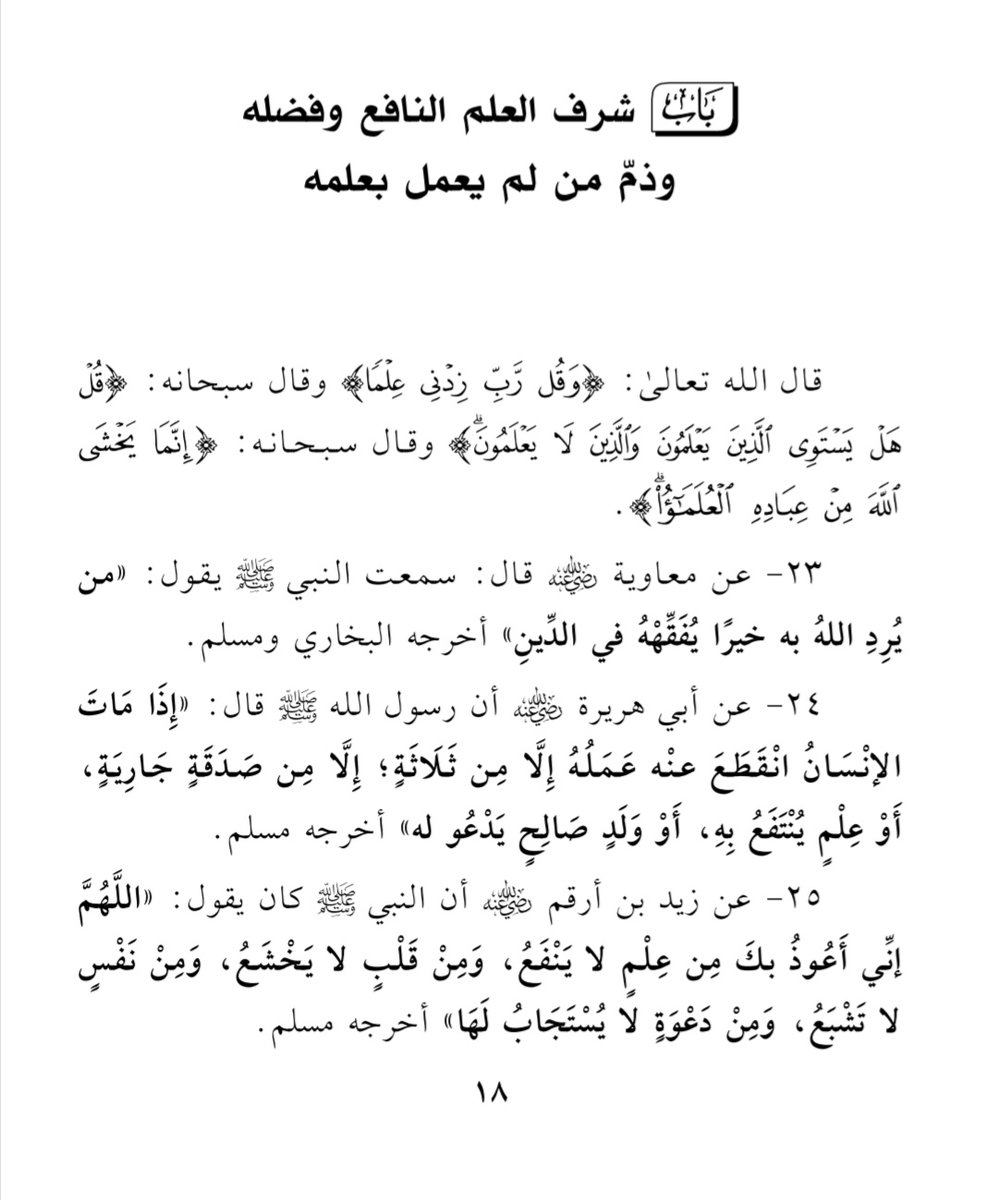 باب شرف العلم النافع وفضله
وذمّ من لم يعمل بعلمه
قال الله تعالىٰ: ﴿وَقُل رَّبِّ زِدْنِي عِلْمًا﴾ وقال سبحانه: ﴿قُلْ
هَلْ يَسْتَوِي ٱلَّذِينَ يَعْلَمُونَ وَٱلَّذِينَ لَا يَعْلَمُونَۗ﴾ وقال سبحانه: ﴿إِنَّمَا يَخْشَى
ٱللَّهَ مِنْ عِبَادِهِ ٱلْعُلَمَٰٓؤُا۟ۗ﴾.
٢٣- عن معاوية رضي الله عنه قال: سمعت النبي ﷺ يقول: «من
يُرِدِ اللهُ به خيرًا يُفَقِّهْهُ في الدِّينِ» أخرجه البخاري ومسلم.
٢٤- عن أبي هريرة رضي الله عنه أن رسول الله ﷺ قال: «إِذَا مَاتَ
الإنْسَانُ انْقَطَعَ عنْه عَمَلُهُ إِلَّا مِن ثَلَاثَةٍ؛ إِلَّا مِن صَدَقَةٍ جَارِيَةٍ،
أَوْ عِلْمٍ يُنْتَفَعُ بِهِ، أَوْ وَلَدٍ صَالِحٍ يَدْعُو له» أخرجه مسلم.
٢٥- عن زيد بن أرقم رضي الله عنه أن النبي ﷺ كان يقول: «اللَّهُمَّ
إنِّي أَعُوذُ بكَ مِن عِلْمٍ لا يَنْفَعُ، وَمِنْ قَلْبٍ لا يَخْشَعُ، وَمِنْ نَفْسٍ
لا تَشْبَعُ، وَمِنْ دَعْوَةٍ لا يُسْتَجَابُ لَهَا» أخرجه مسلم.
١٨